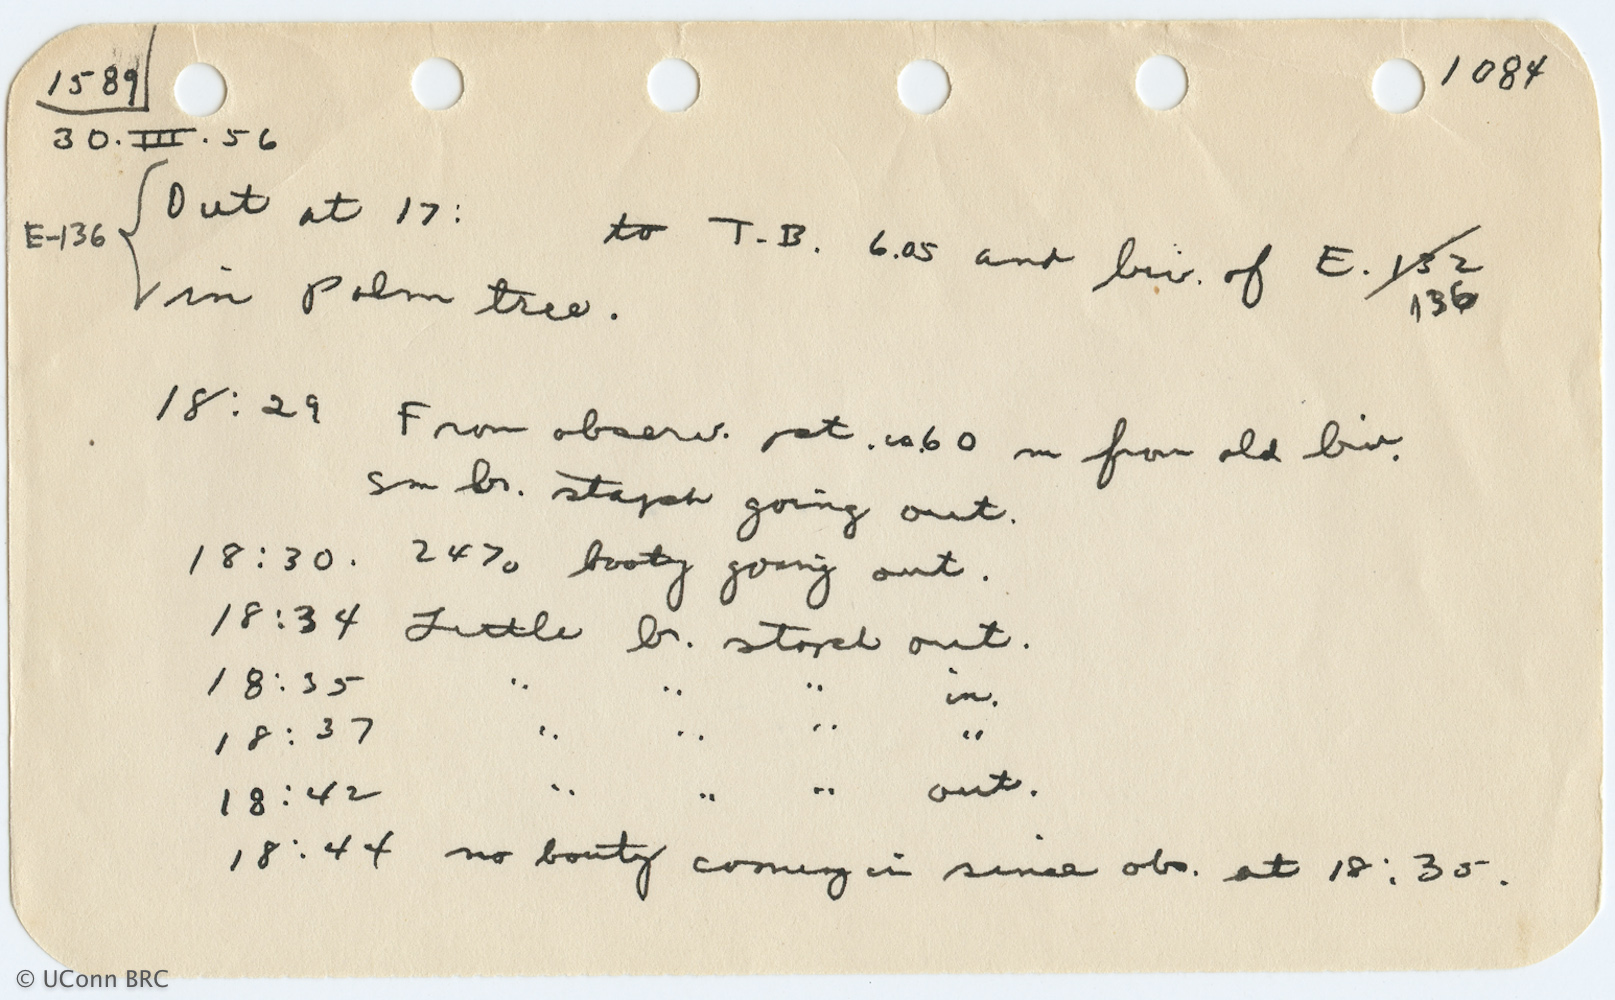 1589 1084
30.III.56
E-136 Out at 17: to T.B. 6.05 and biv. of E. 132 136
in palm tree.
18:29 From observ. pt. ca. 60 m from old biv.
sm br. staph going out.
18:30. 24% booty going out.
18:34 Little br. staph out.
18:35 " " " in.
18:37 " " " "
18:42 " " " out.
18:44 no booty coming in since obs. at 18:35.
© UConn BRC